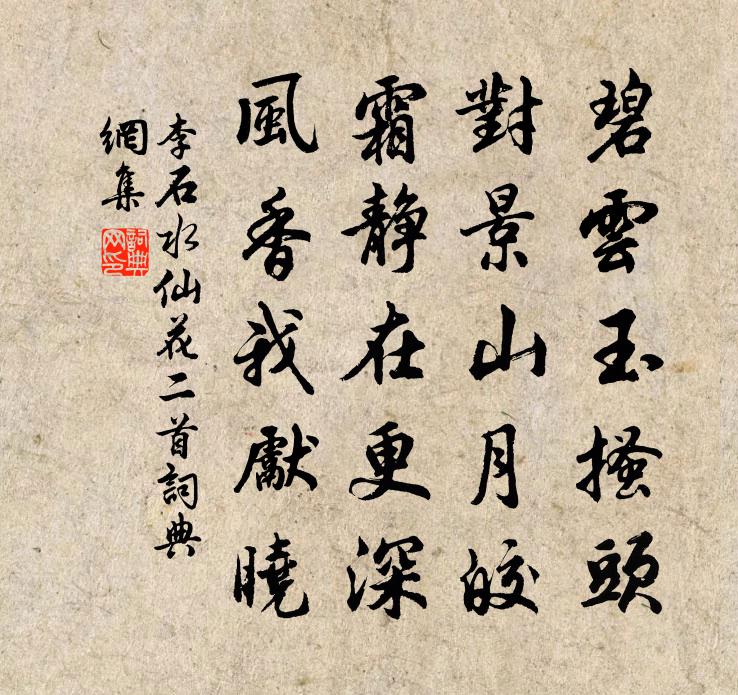 碧雲玉搔頭
對景山月皎
霜静在更深
風香我獻曉
李石水仙花二首詞典
網集
詞典
网印